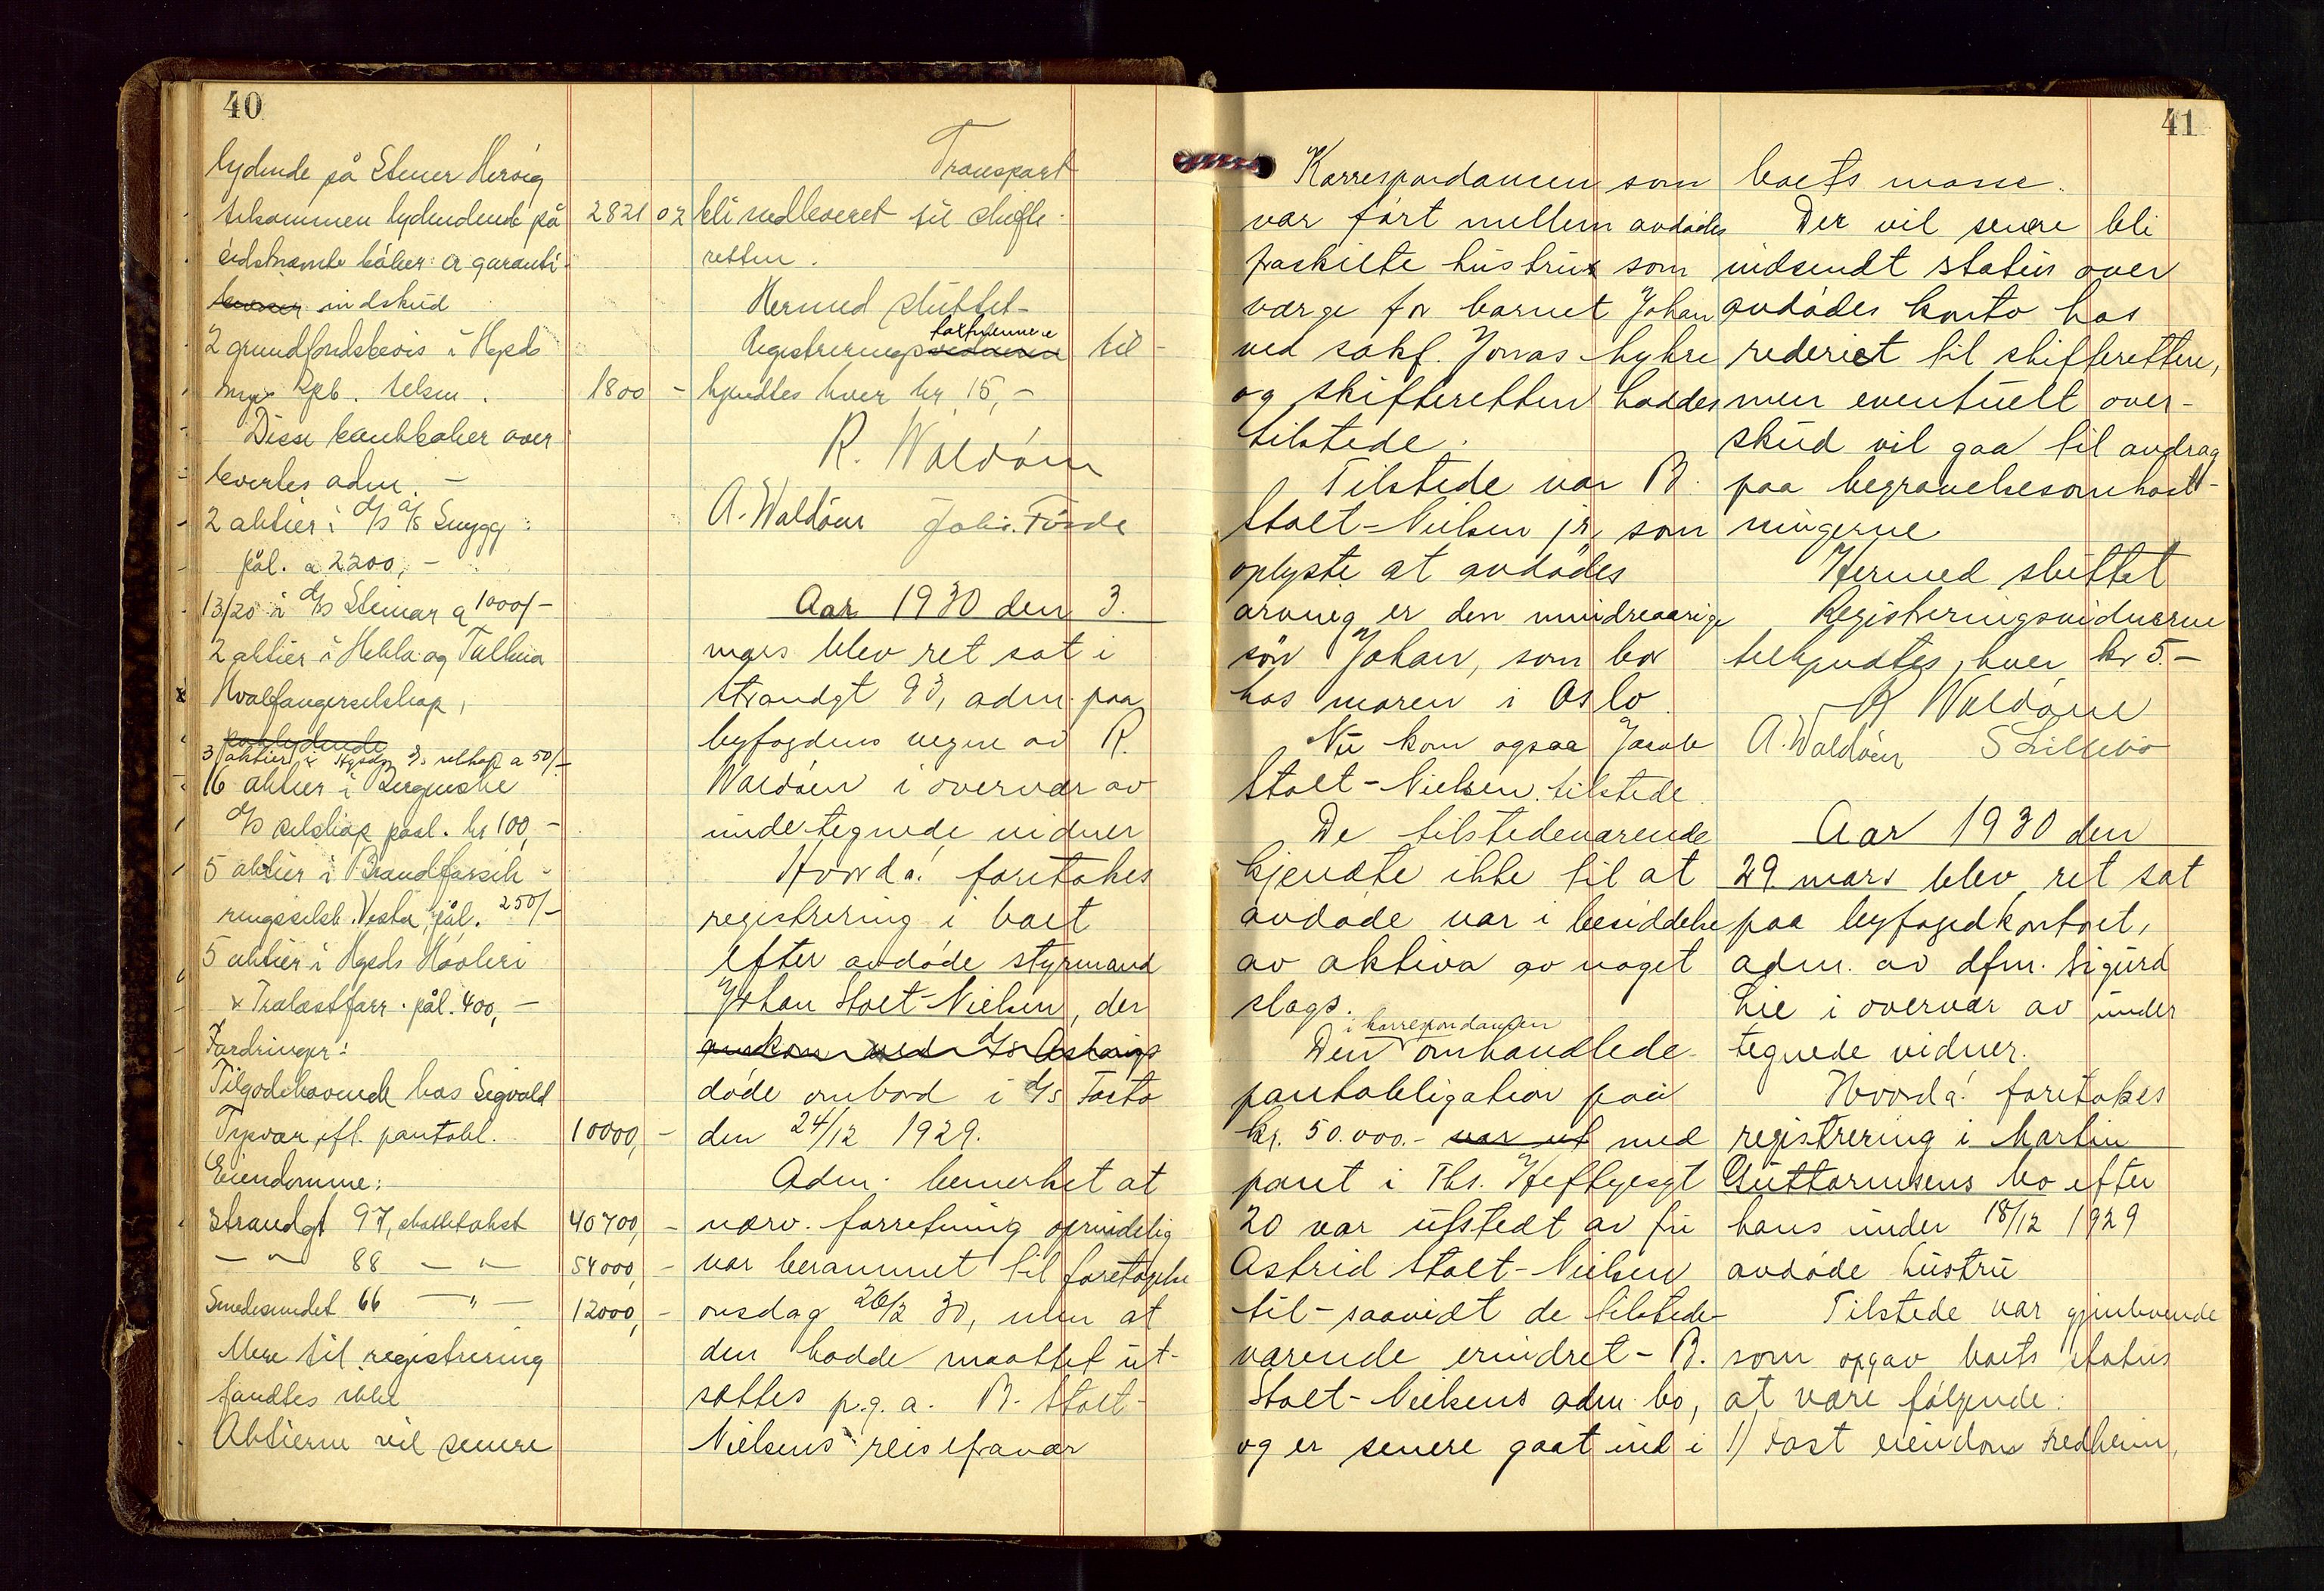 40
lydende på Stener Hervig
tilsammen lydendende på 2821 02
sidstnævnte bøker: a garanti-
indskud
2 grundfondsbevis i Hgsds
nye Spb. tilsm. 1800 -
Disse bankbøker over
leveres adm. -
2 aktier i d/s a/s Snygg:
pål. a 2200,-
13/20 i d/s Steinar a 1000/-
2 aktier i Hekla og Tulluia
Hvalfangerselskap,
pålydende
3 aktier i Hgsds Ds selkap a 50/-
16 aktier i Bergenske
d/s selskap paal. kr 100,-
5 aktier i Brandforsik-
ringsselsk. Vesta, pål. 250/-
5 aktier i Hgsds Høvleri
& Trælastforr. pål. 400,-
Fordringer:
Tilgodehavende hos Sigvald
Tysvær ifl. pantobl. 10000,-
Eiendomme:
Strandgt 97, skattetakst 40700,-
- " - 88 - " - 54000,-
Smedesundet 66 - " - 12000,-
Mere til registrering
fandtes ikke
Aktierne vil senere
Transport
bli nedleveret til skifte-
retten.
Hermed sluttet-
takstmennene
Registrerings til-
kjendtes hver kr. 15,-
R. Waldöen
A. Waldöen Johs. Förde
Aar 1930 den 3.
mars blev ret sat i
Strandgt 93, adm. paa
byfogdens vegne av R.
Waldöen i overvær av
undertegnede vidner
Hvorda! foretokes
registrering i boet
efter avdøde styrmand
Johan Stolt-Nielsen, der
omkom ved d/s
døde ombord i d/s Tosto
den 24/12 1929.
Adm. bemerket at
nærv. forretning oprindelig
var berammet til foretagelse
onsdag 26/2 30, men at
den hadde maattet ut-
sættes p.g.a. B. Stolt-
Nielsens reisefravær
41
Korrespondansen som
var ført mellem avdødes
fraskilte hustru som
værge for barnet Johan
ved sakf. Jonas Lykre
og skifteretten haddes
tilstede.
Tilstede var B.
Stolt-Nielsen jr. som
oplyste at avdødes
arving er den mindreaarige
søn Johan, som bor
hos moren i Oslo.
Nu kom ogsaa Jacob
Stolt-Nielsen tilstede.
De tilstedeværende
kjendte ikke til at
avdøde var i besiddelse
av aktiva av noget
slags.
i korrespondansen
Den omhandlede
pantobligation paa
kr. 50.000.- var ut med
pant i Ths. Heftyesgt
20 var utstedt av fru
Astrid Stolt-Nielsen
til - saavidt de tilstede-
værende erindret - B.
Stolt-Nielsens adm. bo,
og er senere gaat ind i
boets masse.
Der vil senere bli
indsendt status over
avdødes konto hos
rederiet til skifteretten,
men eventuelt over-
skud vil gaa til avdrag
paa begravelsesomkost-
ningerne
Hermed sluttet
Registreringsvidnerne
tilkjendtes, hver kr 5.-
R Waldöen
A. Waldöen S Lillebö
Aar 1930 den
29. mars blev ret sat
paa byfogedkontoret,
adm. av dfm. Sigurd
Lie i overvær av under
tegnede vidner.
Hvorda! foretokes
registrering i Martin
Guttormsens bo efter
hans under 18/12 1929
avdøde hustru
Tilstede var gjenlevende
som opgav boets status
at være følgende:
1) Fast eiendom Fredheim,